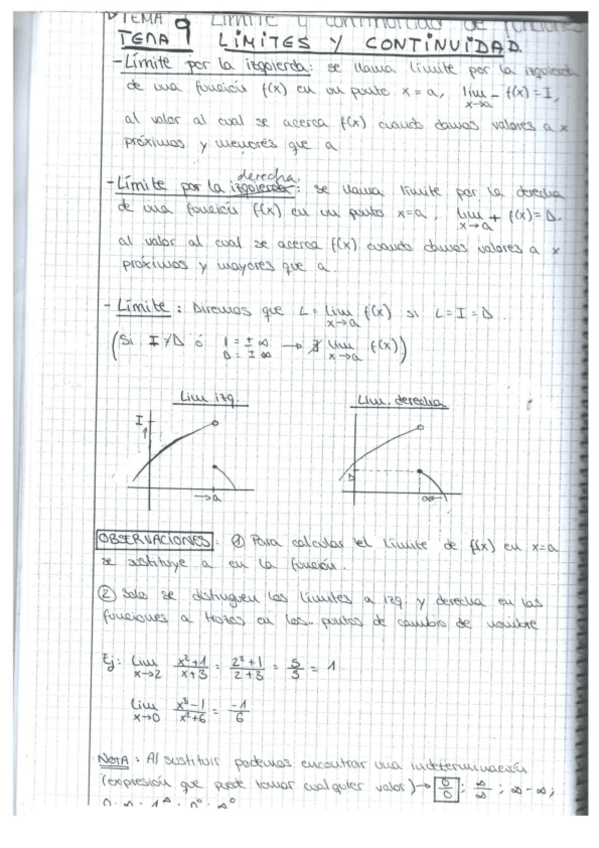 TEMA Límite y continuidad de funciones
TEMA 9 LÍMITES Y CONTINUIDAD.
- Límite por la izquierda: se llama límite por la izquierda
de una función f(x) en un punto x = a, lim x→a⁻ f(x) = I,
al valor al cual se acerca f(x) cuando damos valores a x
próximos y menores que a
derecha.
- Límite por la izquierda: se llama límite por la derecha
de una función f(x) en un punto x=a, lim x→a⁺ f(x) = D.
al valor al cual se acerca f(x) cuando damos valores a x
próximos y mayores que a.
- Límite: Diremos que L = lim x→a f(x) si L = I = D.
(Si I≠D ó I = ±∞ D = ±∞ → ∄ lim x→a f(x))
Lim izq. Lim. derecha
I
1
D
→a a←
OBSERVACIONES: ① Para calcular el límite de f(x) en x=a
se sustituye a en la función.
② Solo se distinguen los límites a izq. y derecha en las
funciones a trozos en los.. puntos de cambio de nombre
Ej: lim x→2 x²+1/x+3 = 2²+1/2+3 = 5/5 = 1
lim x→0 x³-1/x²+6 = -1/6
NOTA: Al sustituir podemos encontrar una indeterminación
(expresión que puede tomar cualquier valor) → 0/0 ; ∞/∞ ; ∞-∞;